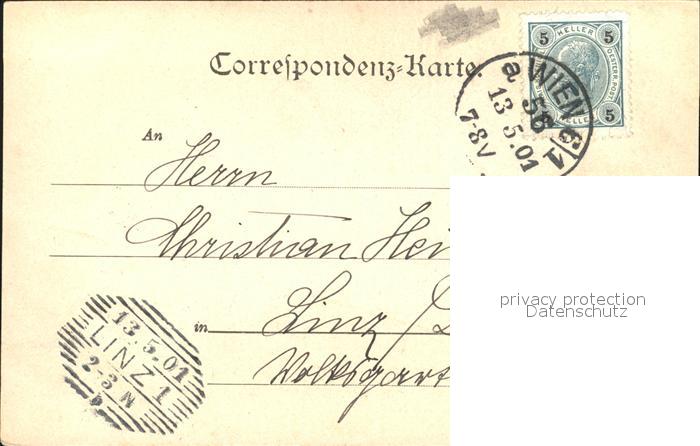 Correspondenz-Karte.
5 HELLER 5
5
WIEN 6/1
a 56
13.5.01
7-8V
An
Herrn
Christian Hei
in Linz /
Volksgart
13.5.01
LINZ 1
2-3 N
b
privacy protection
Datenschutz